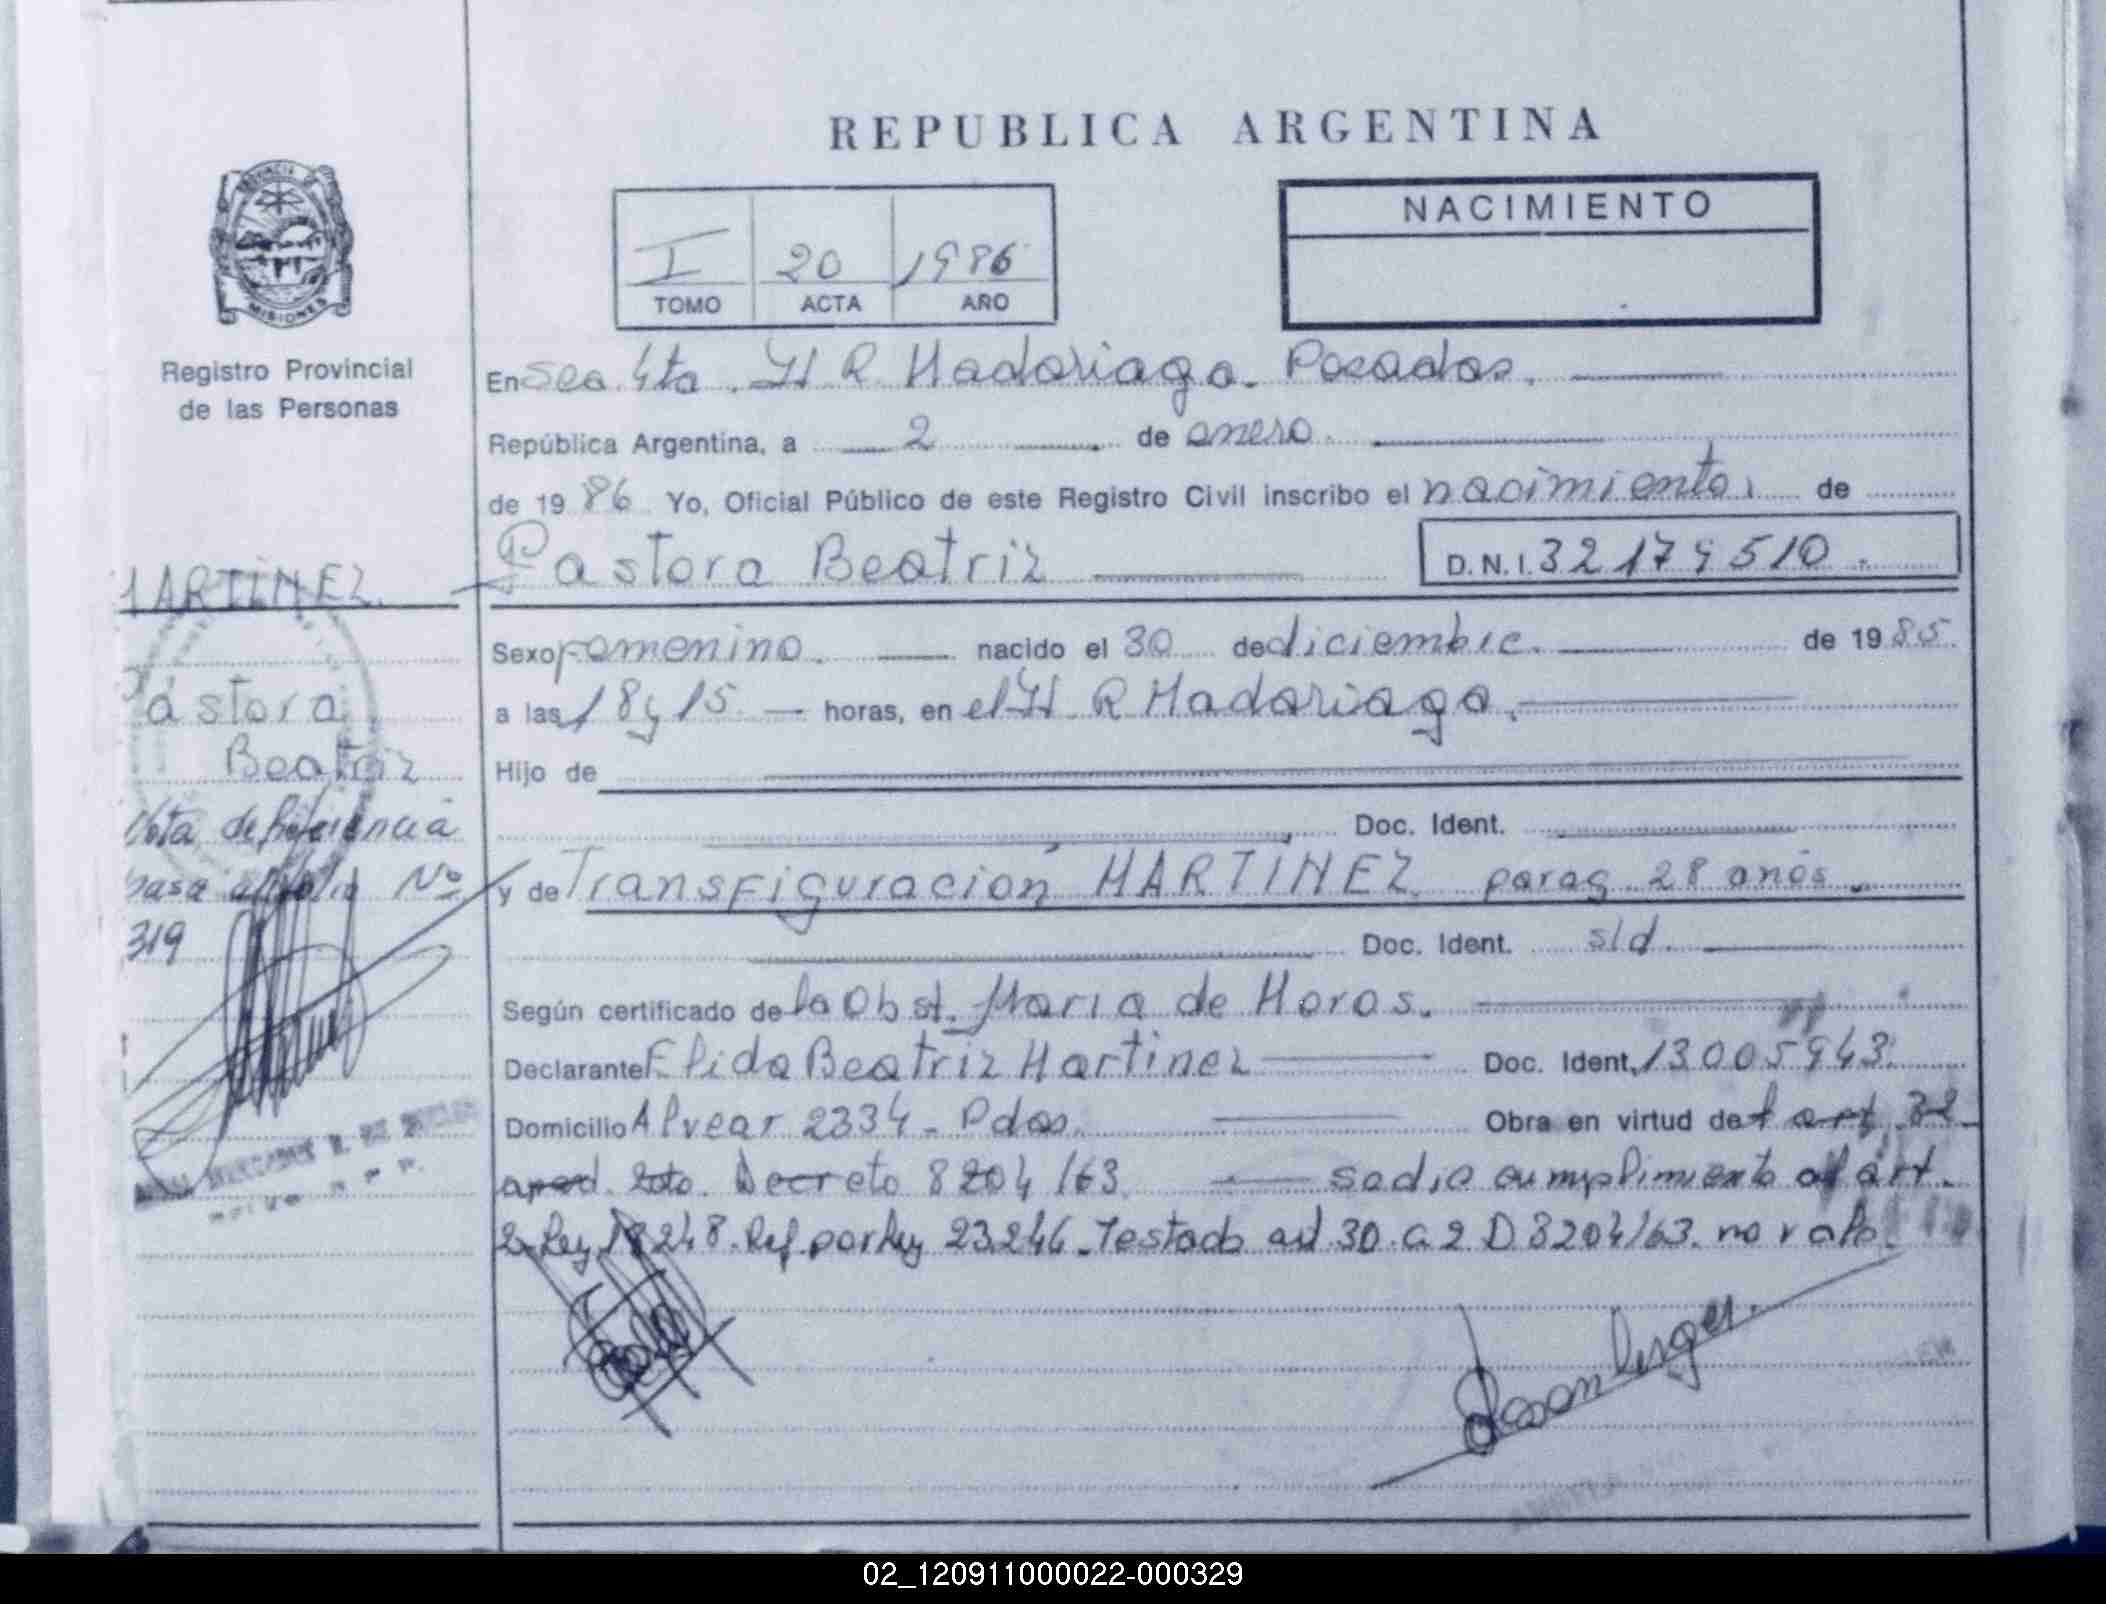 REPUBLICA ARGENTINA
PROVINCIA DE
MISIONES
Registro Provincial
de las Personas
I 20 1986
TOMO ACTA AÑO
NACIMIENTO
En Sec. 4ta. H R Madariaga. Posadas.
República Argentina, a 2 de enero.
de 1986 Yo, Oficial Público de este Registro Civil inscribo el nacimiento, de
Pastora Beatriz D.N.I. 32179510.
Sexo femenino. nacido el 30 de diciembre. de 1985.
a las 18 y 15 horas, en el H R Madariaga.
Hijo de
Doc. Ident.
y de Transfiguración MARTÍNEZ parag 28 años.
Doc. Ident. s/d.
Según certificado de la Obst. Maria de Moros.
Declarante Elida Beatriz Martinez Doc. Ident. 13005943.
Domicilio Alvear 2334 - Pdas. Obra en virtud del art. 32
apod. 2do. Decreto 8204/63. cumplimiento al art.
2 Ley 18248. Ref. por Ley 23.246. Testado art. 30 a 2 D 8204/63. no vale.
MARTÍNEZ.
Pastora
Beatriz
Nota de Referencia
pasa al folio Nº
319
02_120911000022-000329